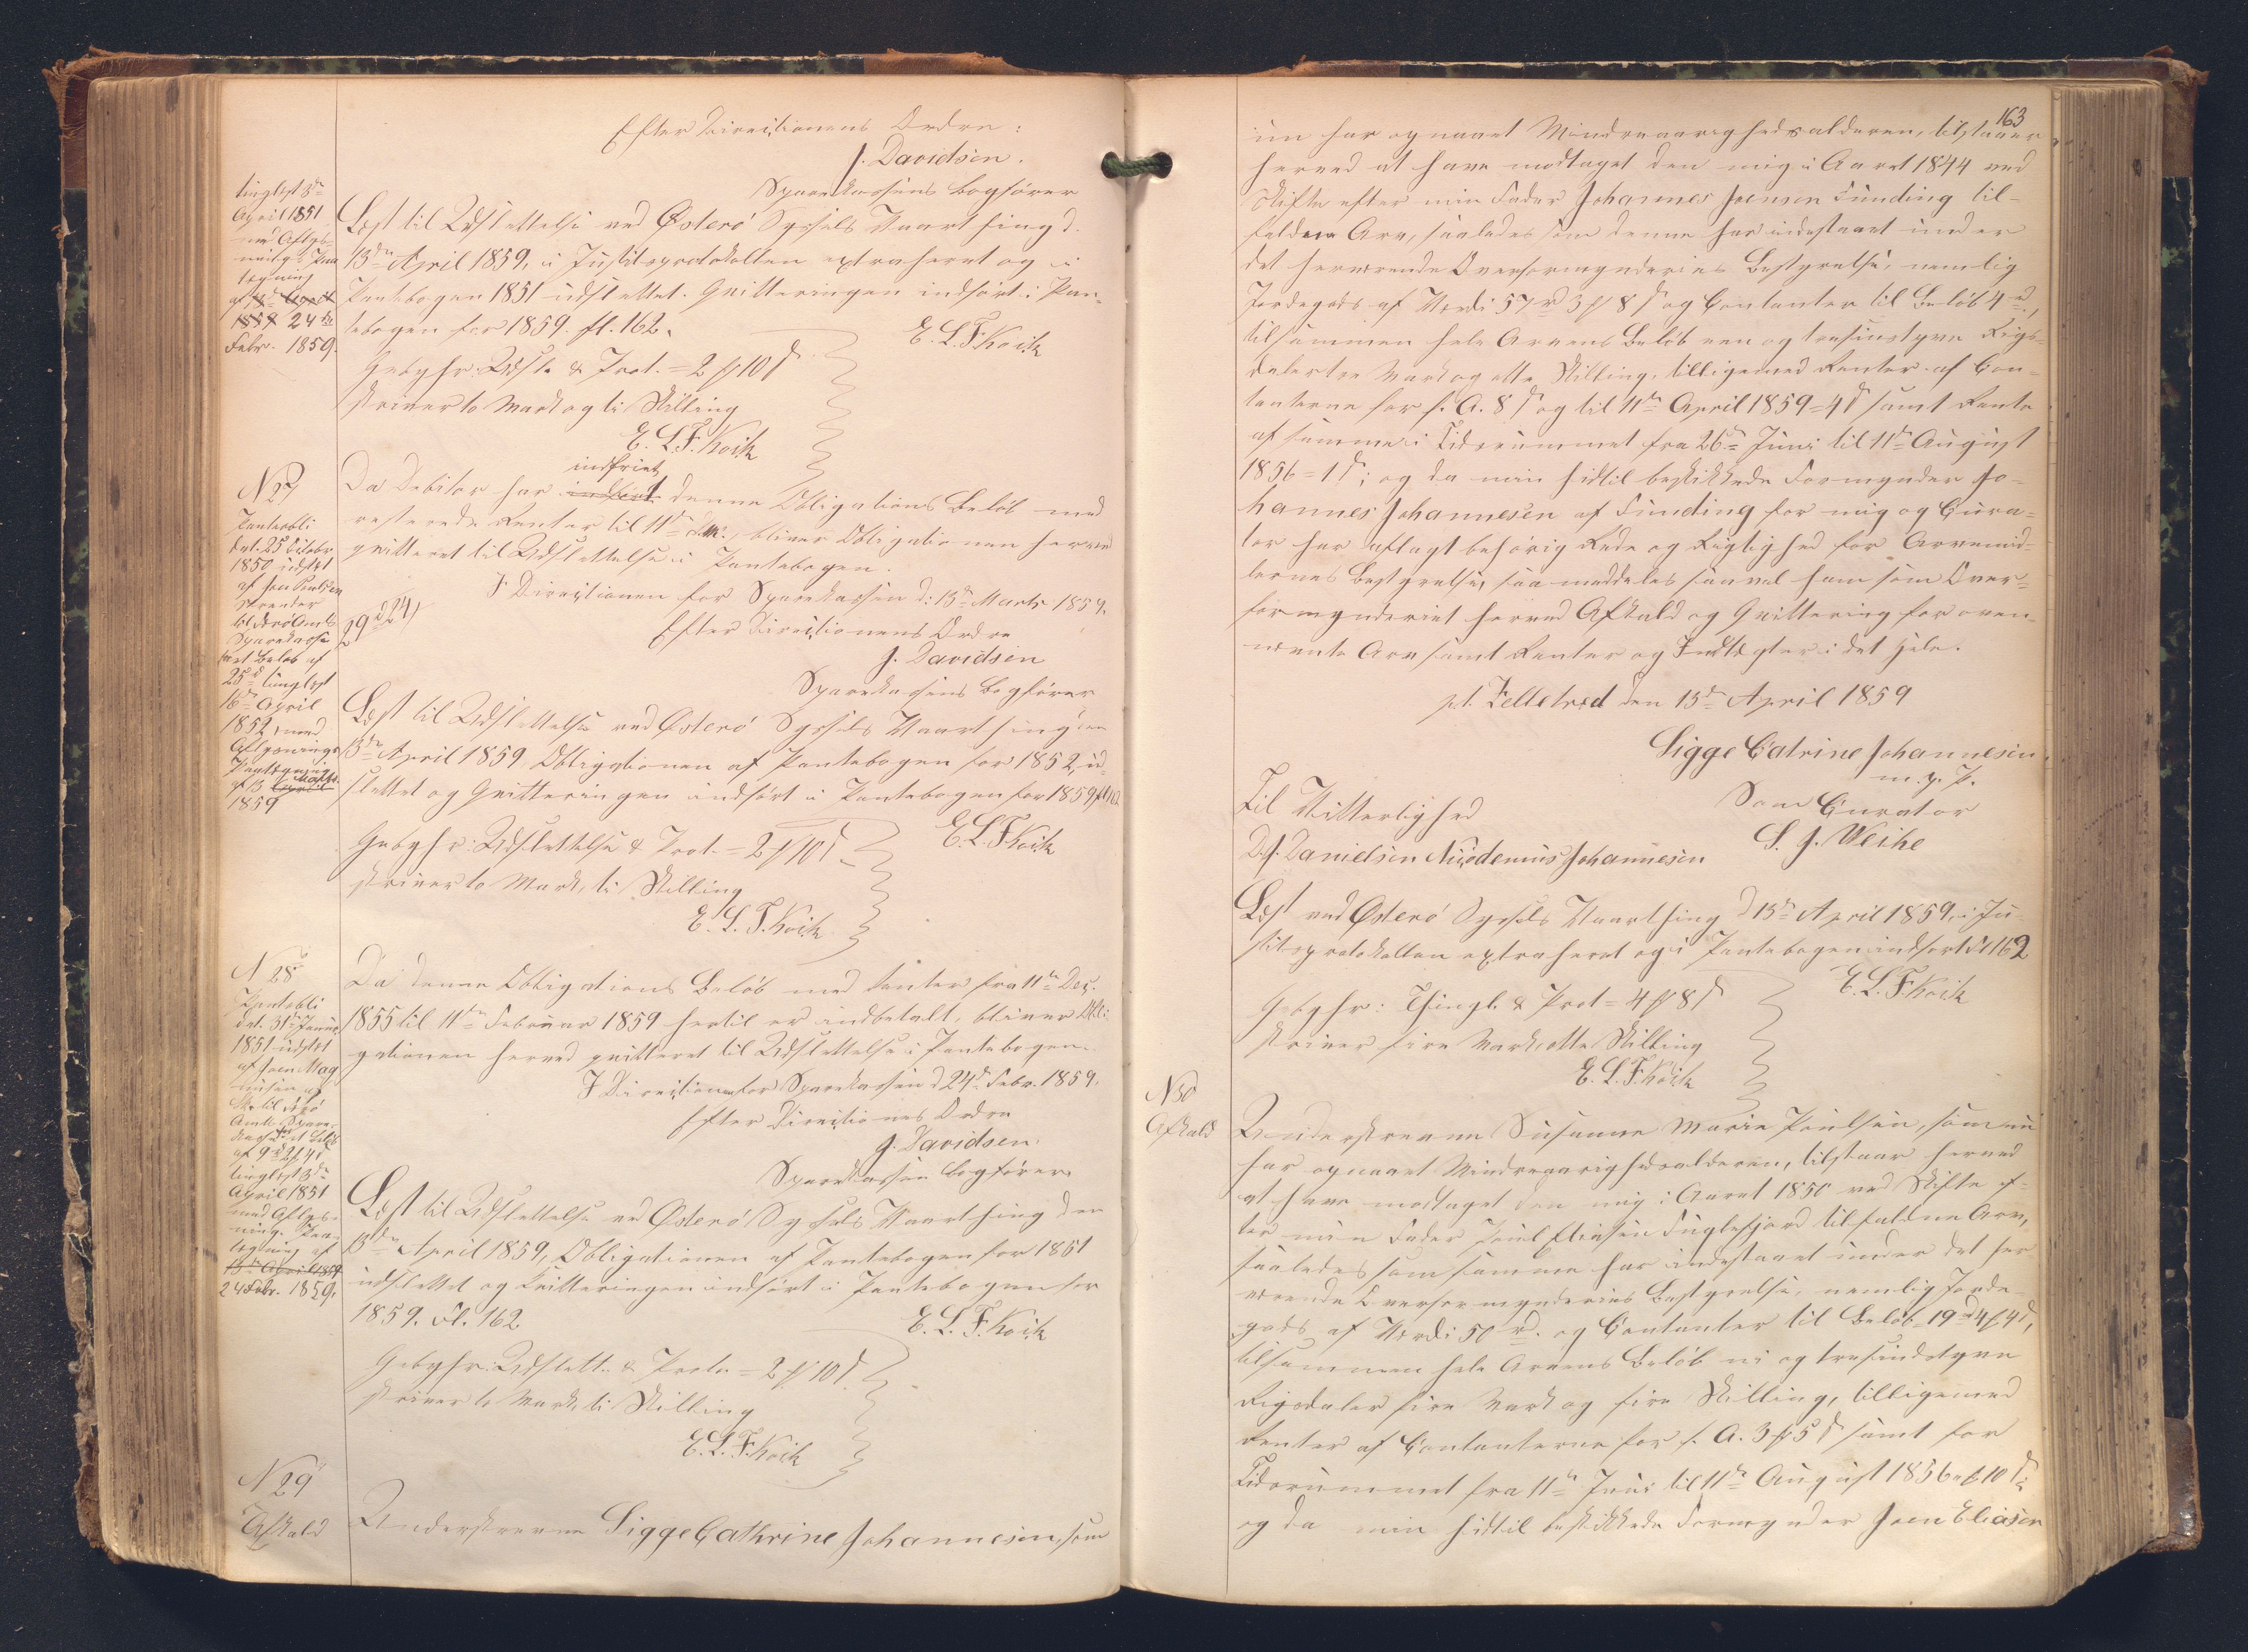 Efter Directionens Ordre:
J. Davidsen.
Sparekassens Bogfører
tinglyst 3die
April 1851
med Aflys-
nings Paa
tegning
af
1859 24de
Febr. 1859.
Læst til Udslettelse ved Østerø Syssels Vaarthing d.
13de April 1859, i Justitsprotokollen extraheret og i
Pantebogen 1851 udslettet. Qvitteringen indført i Pan-
tebogen for 1859. fl. 162.
E. L. F. Koch
Gebyhr: Udsl. & Prot. = 2 ß 10 s
skriver to Mark og ti Skilling
E. L. F. Koch
N 27
Panteobli
dat. 25 Octobr
1850 udstedt
af Joen Poulsen
Strender
til Færø Amts
Sparekasse
for et Beløb af
25 rd tinglyst
16de April
1852, med
Aflysnings
Paategning
af 13 April Marts
1859
29 rd 24 s
Da Debitor har indført indfriet denne Obligations Beløb med
resterende Renter til 11te d.M., bliver Obligationen herved
qvitteret til Udslettelse i Pantebogen.
I Directionen for Sparekassen d: 13de Marts 1859.
Efter Directionens Ordre
J. Davidsen
Sparekassens Bogfører
Læst til Udslettelse ved Østerø Syssels Vaarthing den
13de April 1859, Obligationen af Pantebogen for 1852, ud-
slettet og Qvitteringen indført i Pantebogen for 1859 fl 162
E. L. F. Koch
Gebyhr: Udslettelse & Prot. = 2 ß 10 s
skriver to Mark, ti Skilling
E. L. F. Koch
N 28
Pantobli
dat. 31te Januar
1851 udstedt
af Joen Mag
nusen af
til Færø
Amts Spare-
kasse for et Beløb
af 9 rd 2 ß 4 s
tinglyst 3die
April 1851
med Aflys-
nings Paa-
tegning af
13de April 1859
24 Febr. 1859.
Da denne Obligations Beløb med Renter fra 11te Dec.
1855 til 11te Februar 1859 hertil er indbetalt, bliver Obli-
gationen herved qvitteret til Udslettelse i Pantebogen.
I Directionen for Sparekassen d 24de Febr. 1859.
Efter Directionens Ordre
J. Davidsen.
Sparekassens Bogfører.
Læst til Udslettelse ved Østerø Syssels Vaarthing den
13de April 1859, Obligationen af Pantebogen for 1851
udslettet og Qvitteringen indført i Pantebogen for
1859. Fl. 162
E. L. F. Koch
Gebyhr: Udslett. & Prot. = 2 ß 10 s
skriver to Mark, ti Skilling
E. L. F. Koch
N 29
Afkald
Underskrevne Sigge Cathrine Johannesen, som
163
nu har opnaaet Mindreaarighedsalderen, tilstaaer
herved at have modtaget den mig i Aaret 1844 ved
Skifte efter min Fader Johannes Joensen Funding til-
faldne Arv, saaledes som denne har indestaaet under
det herværende Overformynderies Bestyrelse, nemlig
Jordegods af Værdi 57 rd 3 ß 8 s og Contanter til Beløb 4 rd.,
tilsammen hele Arvens Beløb een og tresindstyve Rigs-
daler tre Mark og otte Skilling, tilligemed Renter af Con-
tanterne for f. A. 8 s og til 11te April 1859 = 4 s samt Rente
af samme i Tidsrummet fra 26de Juni til 11te August
1856 = 1 s; og da min hidtil beskikkede Formynder Jo-
hannes Johannesen af Funding for mig og Cura-
tor har aflagt behørig Rede og Rigtighed for Arvemid-
lernes Bestyrelse, saa meddeles saavel ham som Over-
formynderiet herved Afkald og Qvittering for oven-
nævnte Arv samt Renter og Indtægter i det Hele.
pt. Zelletræd den 13de April 1859
Sigge Catrine Johannesen
m. p. P.
Som Curator
S. J. Weihe
Til Vitterlighed
D. J. Danielsen Nicodemus Johannesen
Læst ved Østerø Syssels Vaarthing d 13de April 1859, i Ju-
stitsprotokollen extraheret og i Pantebogen indført Fl 162
E. L. F. Koch
Gebyhr: Thingl. & Prot = 4 ß 8 s
skriver fire Mark, otte Skilling
E. L. F. Koch
N 30
Afkald
Underskrevne Susanne Marie Poulsen, som nu
har opnaaet Mindreaarighedsalderen, tilstaar herved
at have modtaget den mig i Aaret 1850 ved Skifte ef-
ter min Fader Poul Eliasen Fuglefjord tilfaldne Arv,
saaledes som samme har indestaaet under det her
værende Overformynderies Bestyrelse, nemlig Jorde-
gods af Værdi 50 rd. og Contanter til Beløb 19 rd 4 ß 4 s,
tilsammen hele Arvens Beløb ni og tresindstyve
Rigsdaler fire Mark og fire Skilling, tilligemed
Renter af Contanterne for f. A. 3 ß 5 s samt for
Tidsrummet fra 11te Juni til 11te August 1856 " ß 10 s;
og da min hidtil beskikkede Formynder Joen Eliasen